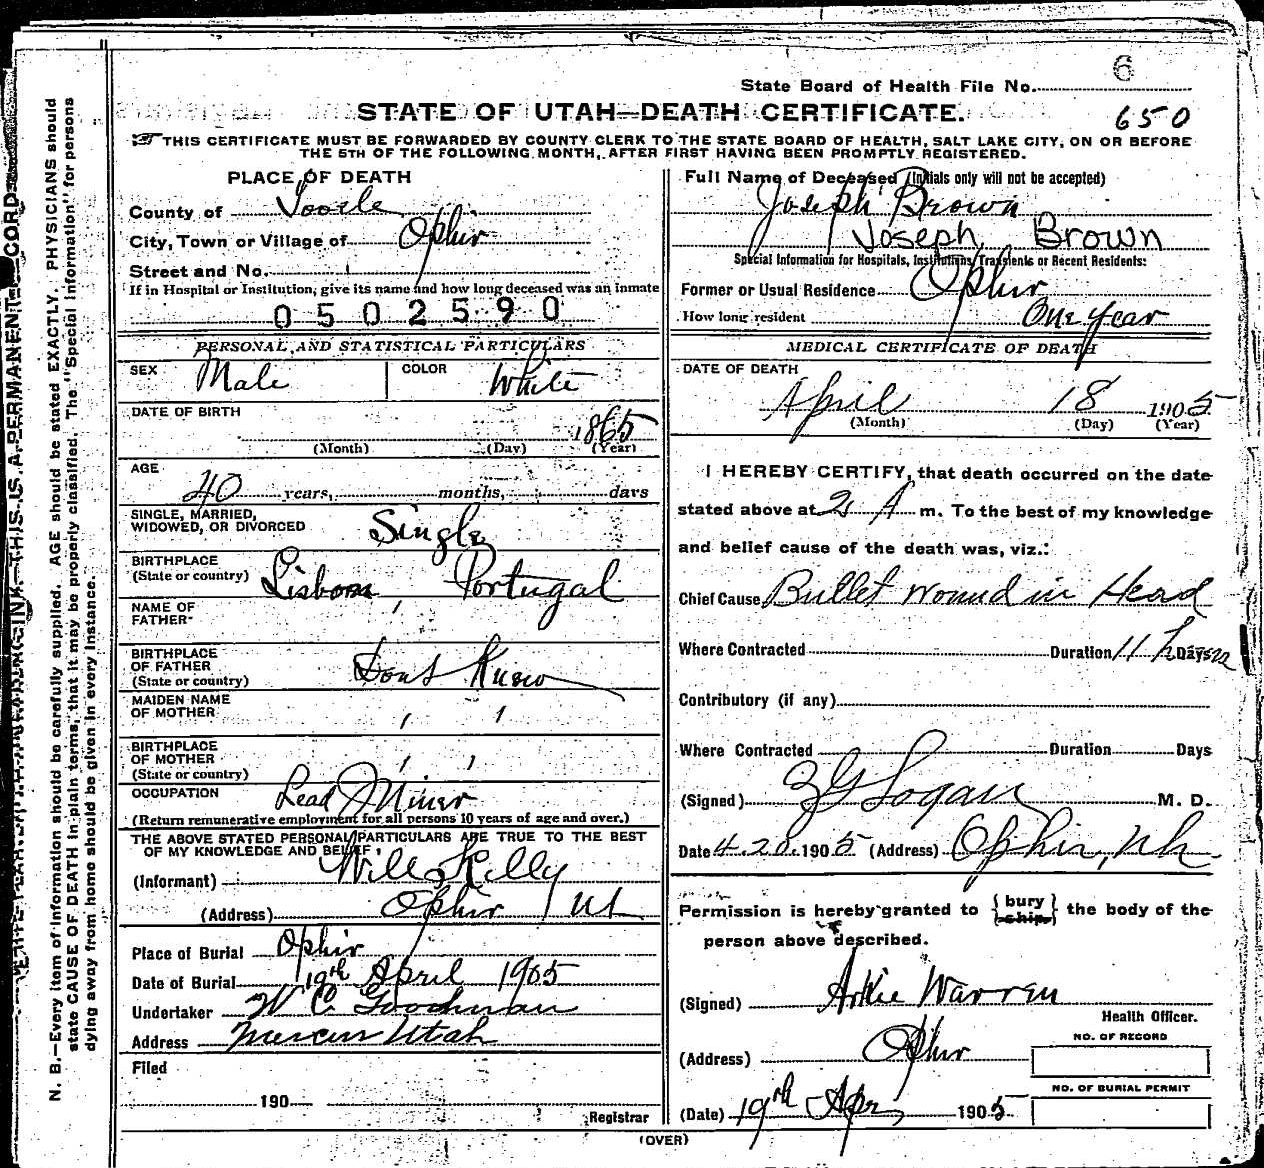 State Board of Health File No. 6
STATE OF UTAH—DEATH CERTIFICATE. 650
THIS CERTIFICATE MUST BE FORWARDED BY COUNTY CLERK TO THE STATE BOARD OF HEALTH, SALT LAKE CITY, ON OR BEFORE
THE 5TH OF THE FOLLOWING MONTH, AFTER FIRST HAVING BEEN PROMPTLY REGISTERED.
PLACE OF DEATH
County of Tooele
City, Town or Village of Ophir
Street and No.
If in Hospital or Institution, give its name and how long deceased was an inmate
0502590
Full Name of Deceased (Initials only will not be accepted)
Joseph Brown
Joseph Brown
Special Information for Hospitals, Institutions, Transients or Recent Residents:
Former or Usual Residence Ophir
How long resident One year
PERSONAL AND STATISTICAL PARTICULARS
SEX Male COLOR White
DATE OF BIRTH
1865
(Month) (Day) (Year)
AGE
40 years, months, days
SINGLE, MARRIED,
WIDOWED, OR DIVORCED Single
BIRTHPLACE
(State or country) Lisbon Portugal
NAME OF
FATHER
BIRTHPLACE
OF FATHER
(State or country) Dont Know
MAIDEN NAME
OF MOTHER " "
BIRTHPLACE
OF MOTHER
(State or country) " "
OCCUPATION Lead Miner
(Return remunerative employment for all persons 10 years of age and over.)
THE ABOVE STATED PERSONAL PARTICULARS ARE TRUE TO THE BEST
OF MY KNOWLEDGE AND BELIEF
(Informant) Will Kelly
(Address) Ophir Ut
Place of Burial Ophir
Date of Burial 19th April 1905
Undertaker W C Goodman
Address Mercur Utah
Filed
190
Registrar
MEDICAL CERTIFICATE OF DEATH
DATE OF DEATH
April 18 1905
(Month) (Day) (Year)
I HEREBY CERTIFY, that death occurred on the date
stated above at 2 A m. To the best of my knowledge
and belief cause of the death was, viz.:
Chief Cause Bullet wound in Head
Where Contracted Duration 11 Days
Contributory (if any)
Where Contracted Duration Days
(Signed) Logan M. D.
Date 4.20.1905 (Address) Ophir,
Permission is hereby granted to { bury ship } the body of the
person above described.
(Signed) Arkie Warren
Health Officer.
(Address) Ophir
NO. OF RECORD
NO. OF BURIAL PERMIT
(Date) 19th Apr 1905
(OVER)
N. B.—Every item of information should be carefully supplied. AGE should be stated EXACTLY. PHYSICIANS should
state CAUSE OF DEATH in plain terms, that it may be properly classified. The "Special Information" for persons
dying away from home should be given in every instance.
INK—THIS IS A PERMANENT